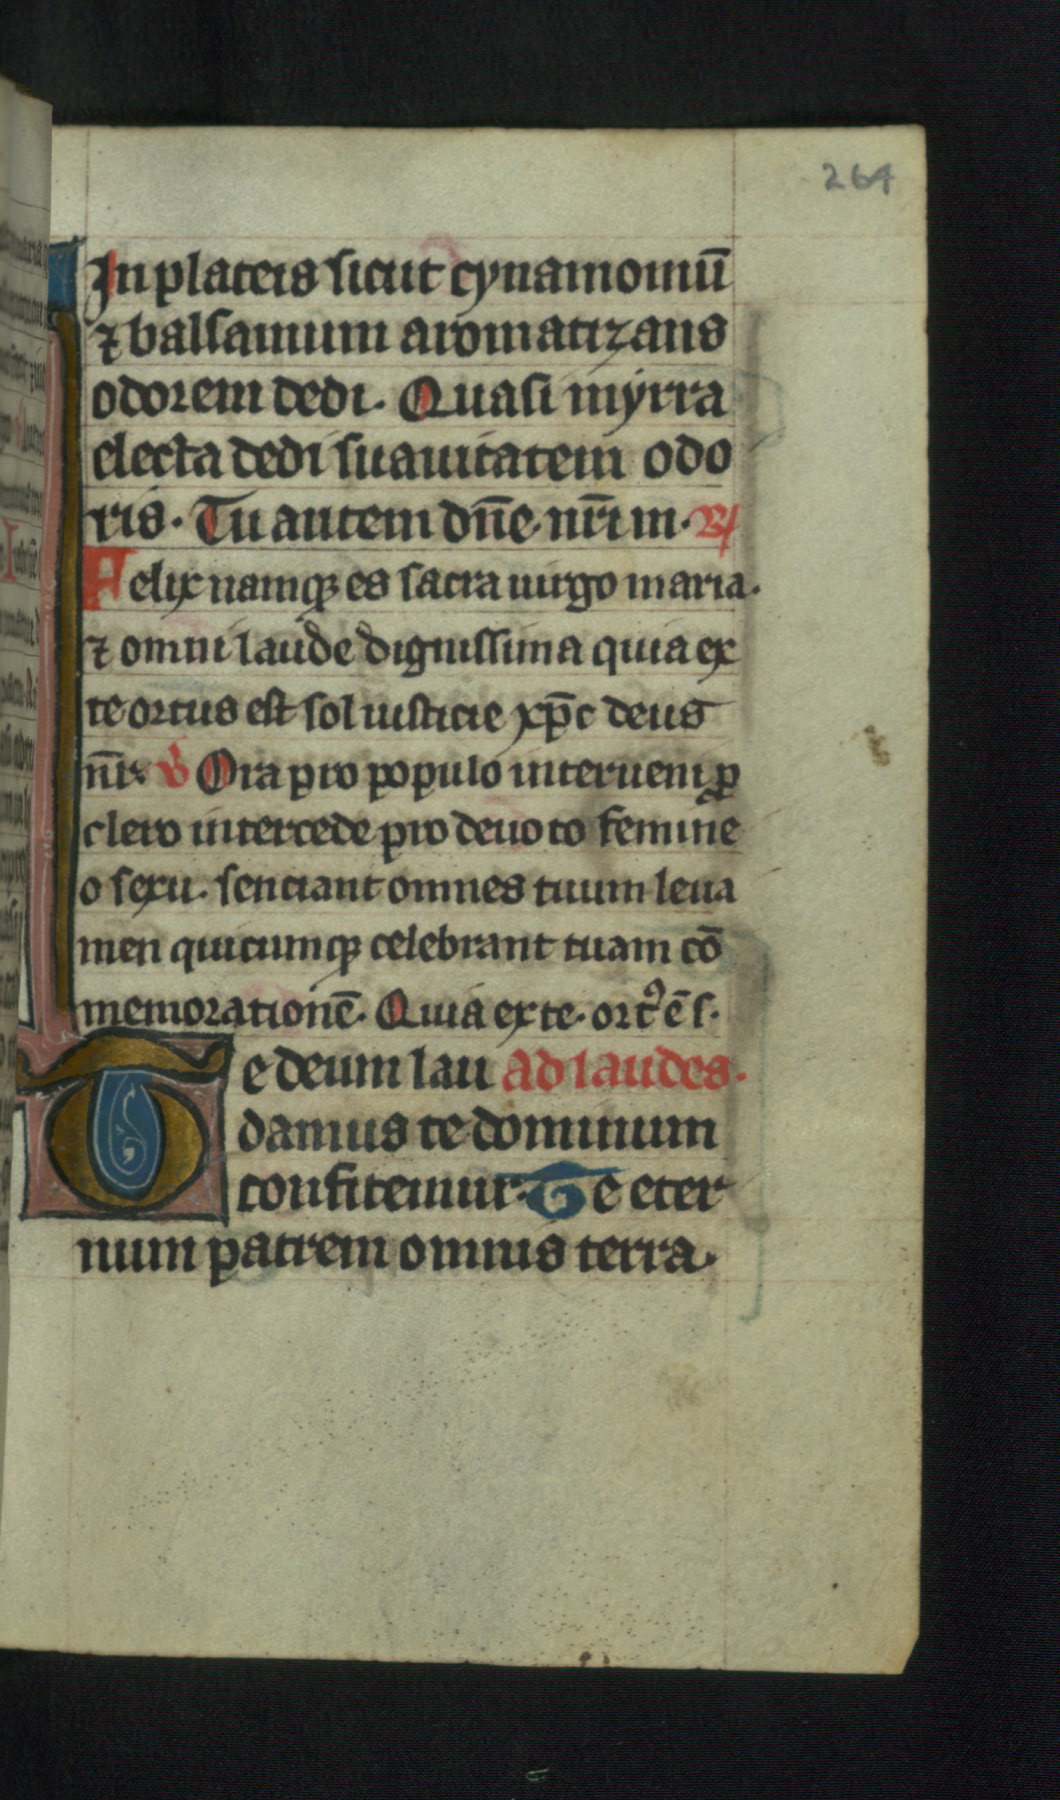 264
In plateis sicut cynamomū
⁊ balsamum aromatizans
odorem dedi. Quasi myrra
electa dedi suauitatem odo
ris. Tu autem dn̄e. nr̄i m. ℟
Felix namqꝫ es sacra uirgo maria.
⁊ omni laude dignissima quia ex
te ortus est sol iusticie xp̄c deus
nr̄ ℣ Ora pro populo interueni ꝓ
clero intercede pro deuoto femine
o sexu. senciant omnes tuum leua
men quicumqꝫ celebrant tuam cō
memorationē. Quia ex te. ortꝰ ē s.
Te deum lau ad laudes.
damus te dominum
confitemur. Te eter
num patrem omnis terra.